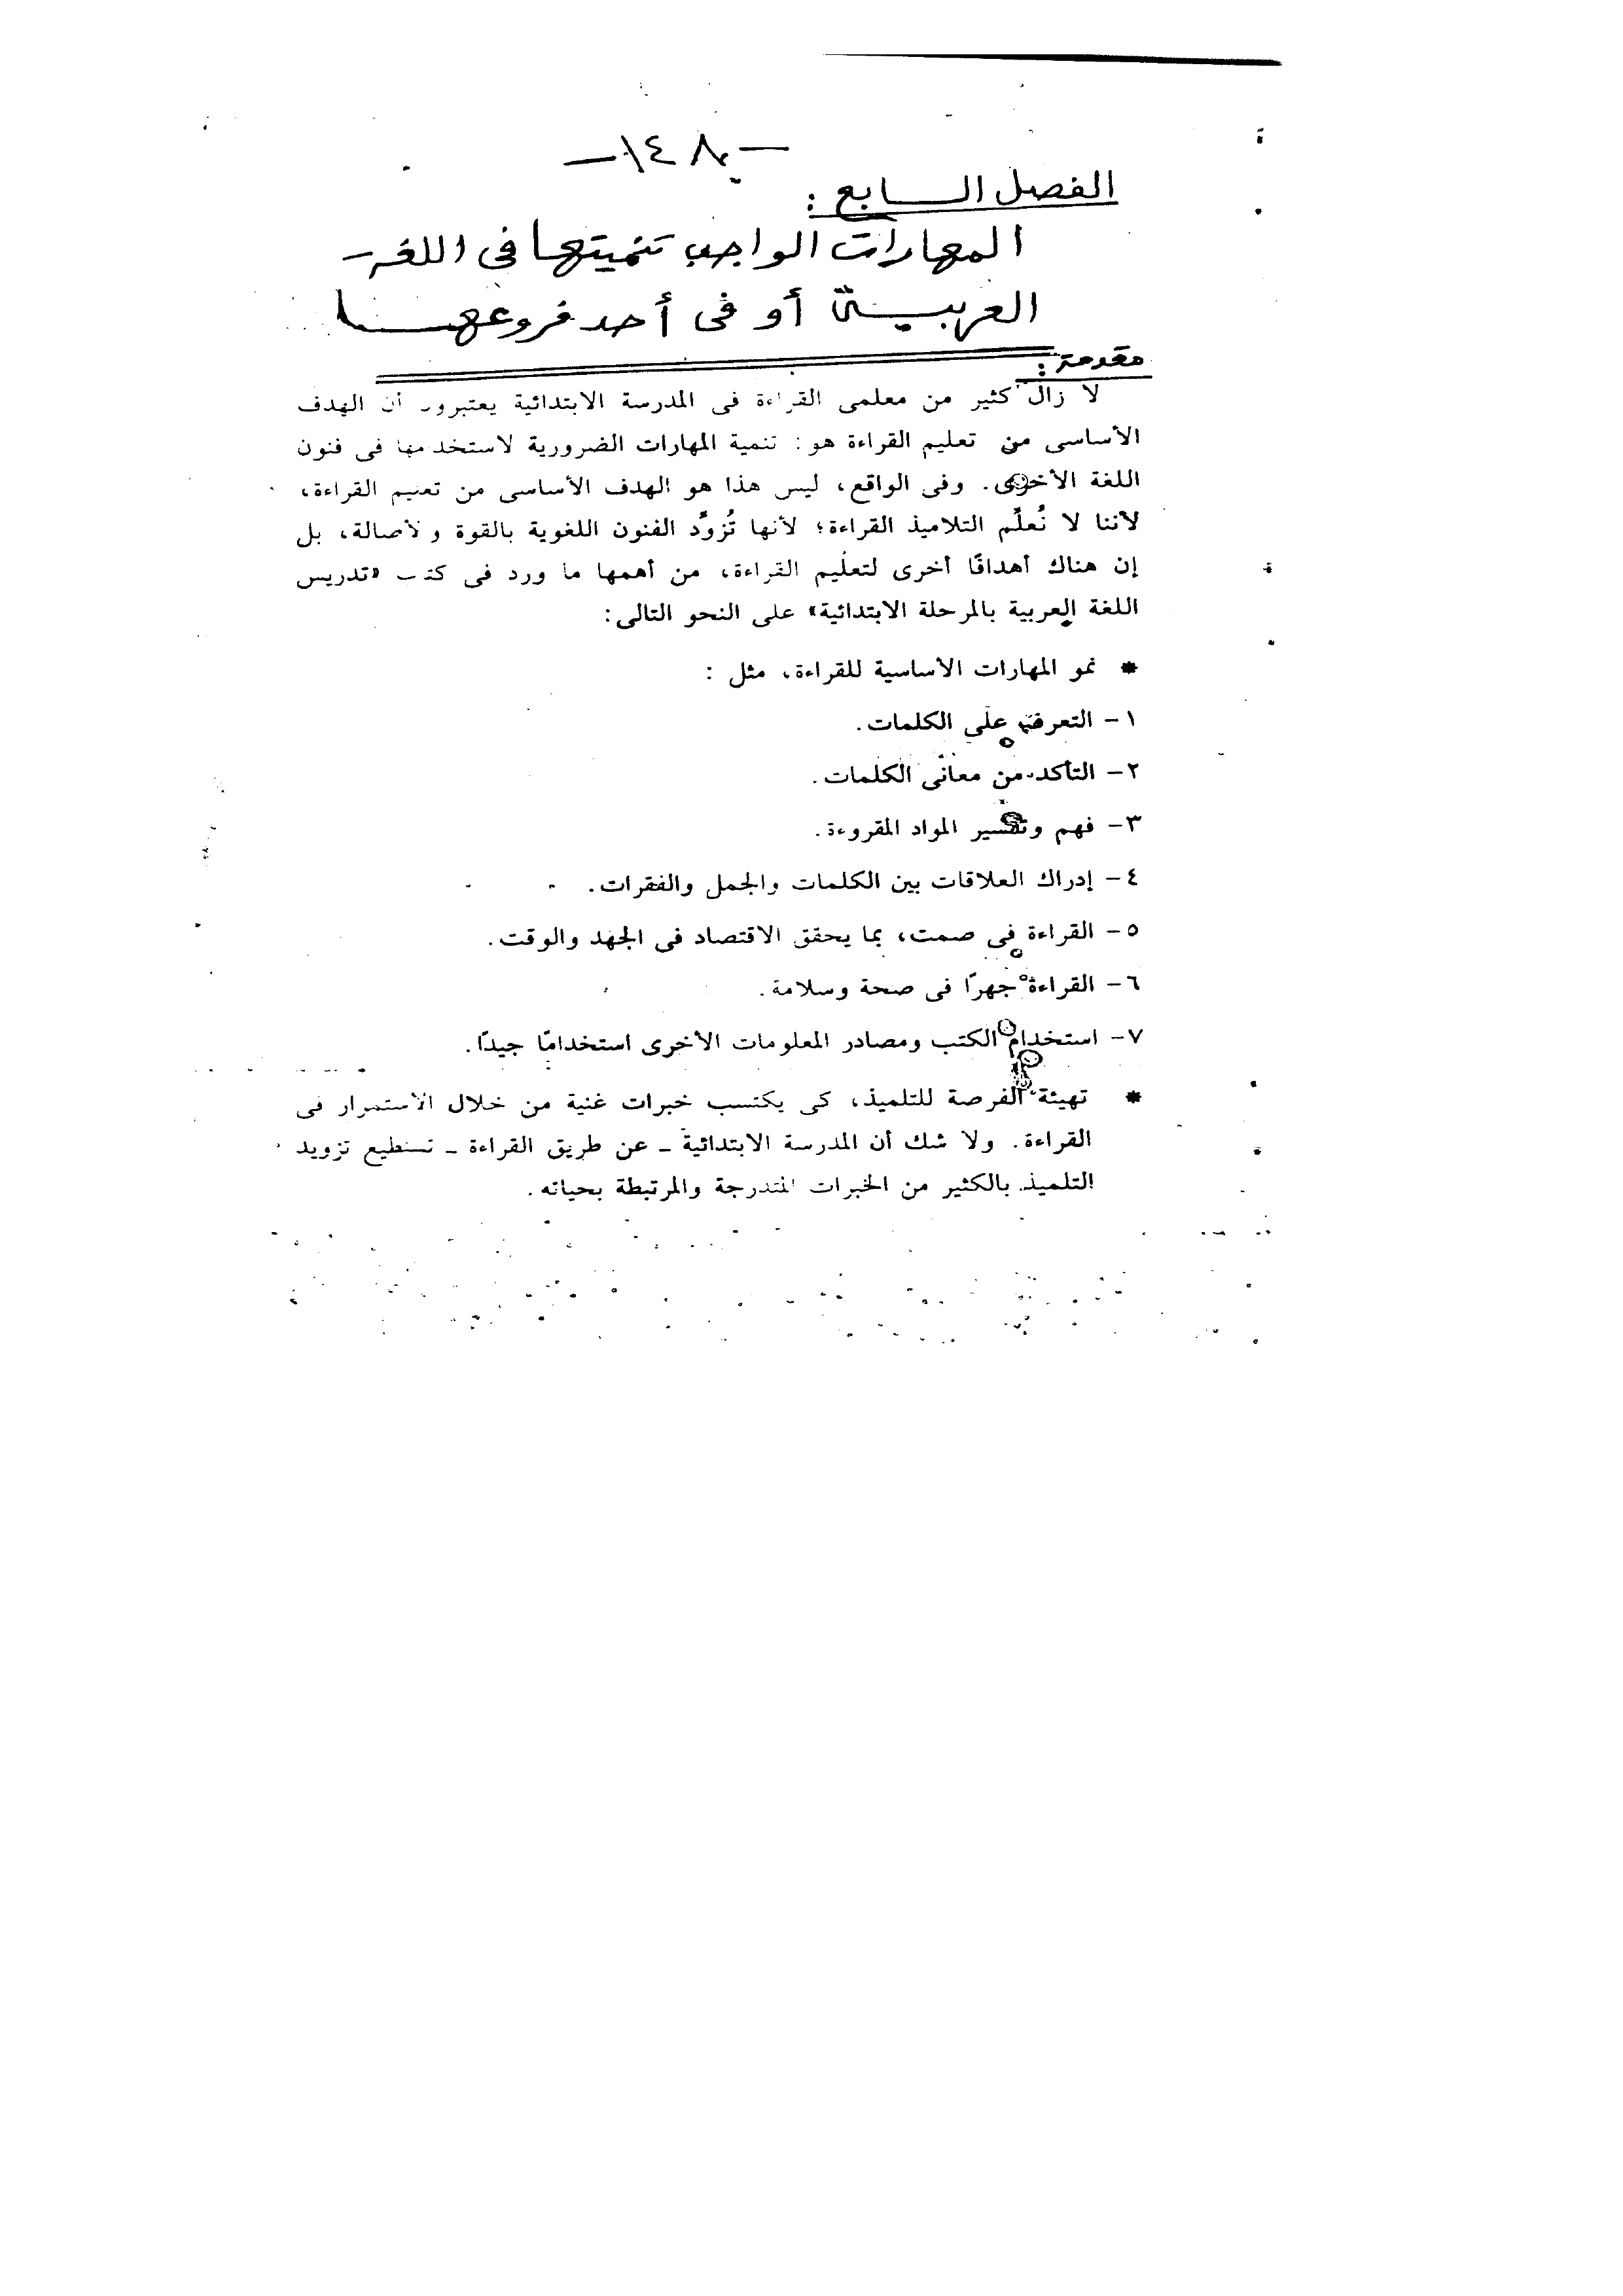 -١٤٨-
الفصل السابع :
المهارات الواجب تنميتها فى اللغة
العربية أو فى أحد فروعها
مقدمة :
لا زال كثير من معلمى القراءة فى المدرسة الابتدائية يعتبرون أن الهدف
الأساسى من تعليم القراءة هو: تنمية المهارات الضرورية لاستخدامها فى فنون
اللغة الأخرى. وفى الواقع، ليس هذا هو الهدف الأساسى من تعليم القراءة،
لأننا لا نُعلِّم التلاميذ القراءة؛ لأنها تُزوِّد الفنون اللغوية بالقوة والأصالة، بل
إن هناك أهدافًا أخرى لتعليم القراءة، من أهمها ما ورد فى كتاب «تدريس
اللغة العربية بالمرحلة الابتدائية» على النحو التالى:
* نمو المهارات الأساسية للقراءة، مثل :
١- التعرف على الكلمات.
٢- التأكد من معانى الكلمات.
٣- فهم وتفسير المواد المقروءة.
٤- إدراك العلاقات بين الكلمات والجمل والفقرات.
٥- القراءة فى صمت، بما يحقق الاقتصاد فى الجهد والوقت.
٦- القراءة جهرًا فى صحة وسلامة.
٧- استخدام الكتب ومصادر المعلومات الأخرى استخدامًا جيدًا.
* تهيئة الفرصة للتلميذ، كى يكتسب خبرات غنية من خلال الاستمرار فى
القراءة. ولا شك أن المدرسة الابتدائية ـ عن طريق القراءة ـ تستطيع تزويد
التلميذ بالكثير من الخبرات المتدرجة والمرتبطة بحياته.